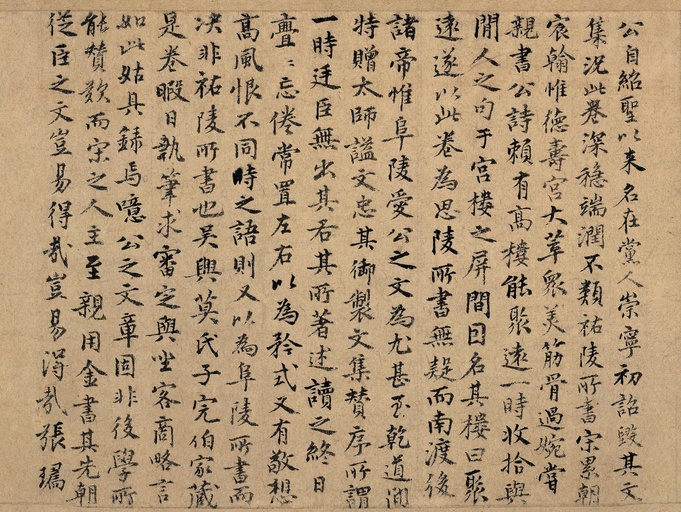 公自紹聖以来名在黨人崇寧初詔毀其文
集況此卷深穏端潤不類祐陵所書宋累朝
宸翰惟德壽宮大萃衆美筋骨過婉嘗
親書公詩頼有高樓能聚逺一時收拾與
閒人之句于宮樓之屏間因名其樓曰聚
逺遂以此卷為思陵所書無疑而南渡後
諸帝惟阜陵愛公之文為尤甚至乾道間
特贈太師謚文忠其御製文集賛序所謂
一時廷臣無出其右其所著述讀之終日
亹〻忘倦常置左右以為矜式又有敬想
髙風恨不同時之語則又以為阜陵所書而
決非祐陵所書也吴興莫氏子完伯家藏
是卷暇日執筆求審定與坐客商略言
如此姑具録焉噫公之文章固非後學所
能賛歎而宋之人主至親用金書其先朝
從臣之文豈易得哉豈易得哉張璹